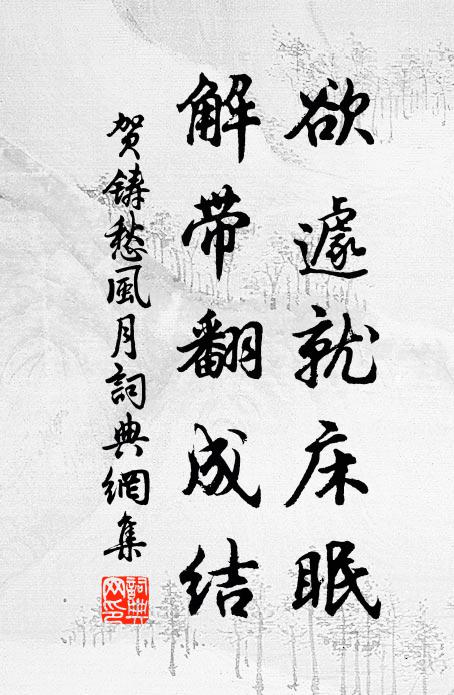 欲遽就床眠
解带翻成结
贺鑄愁風月詞典網集
詞典網印